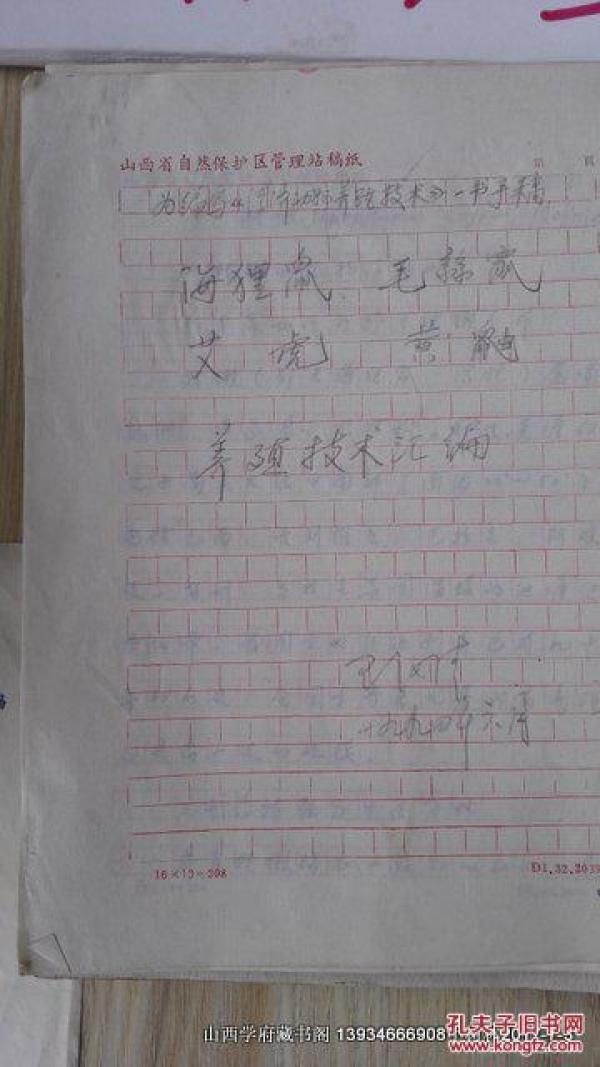 山西省自然保护区管理站稿纸 第 页
为编写《 动物养殖技术》一书手稿
海狸鼠、毛丝鼠
艾虎 黄鼬
养殖技术汇编
一九九四年六月
16×13=208 D1.32.2039
山西学府藏书阁 13934666908
孔夫子旧书网
www.kongfz.com